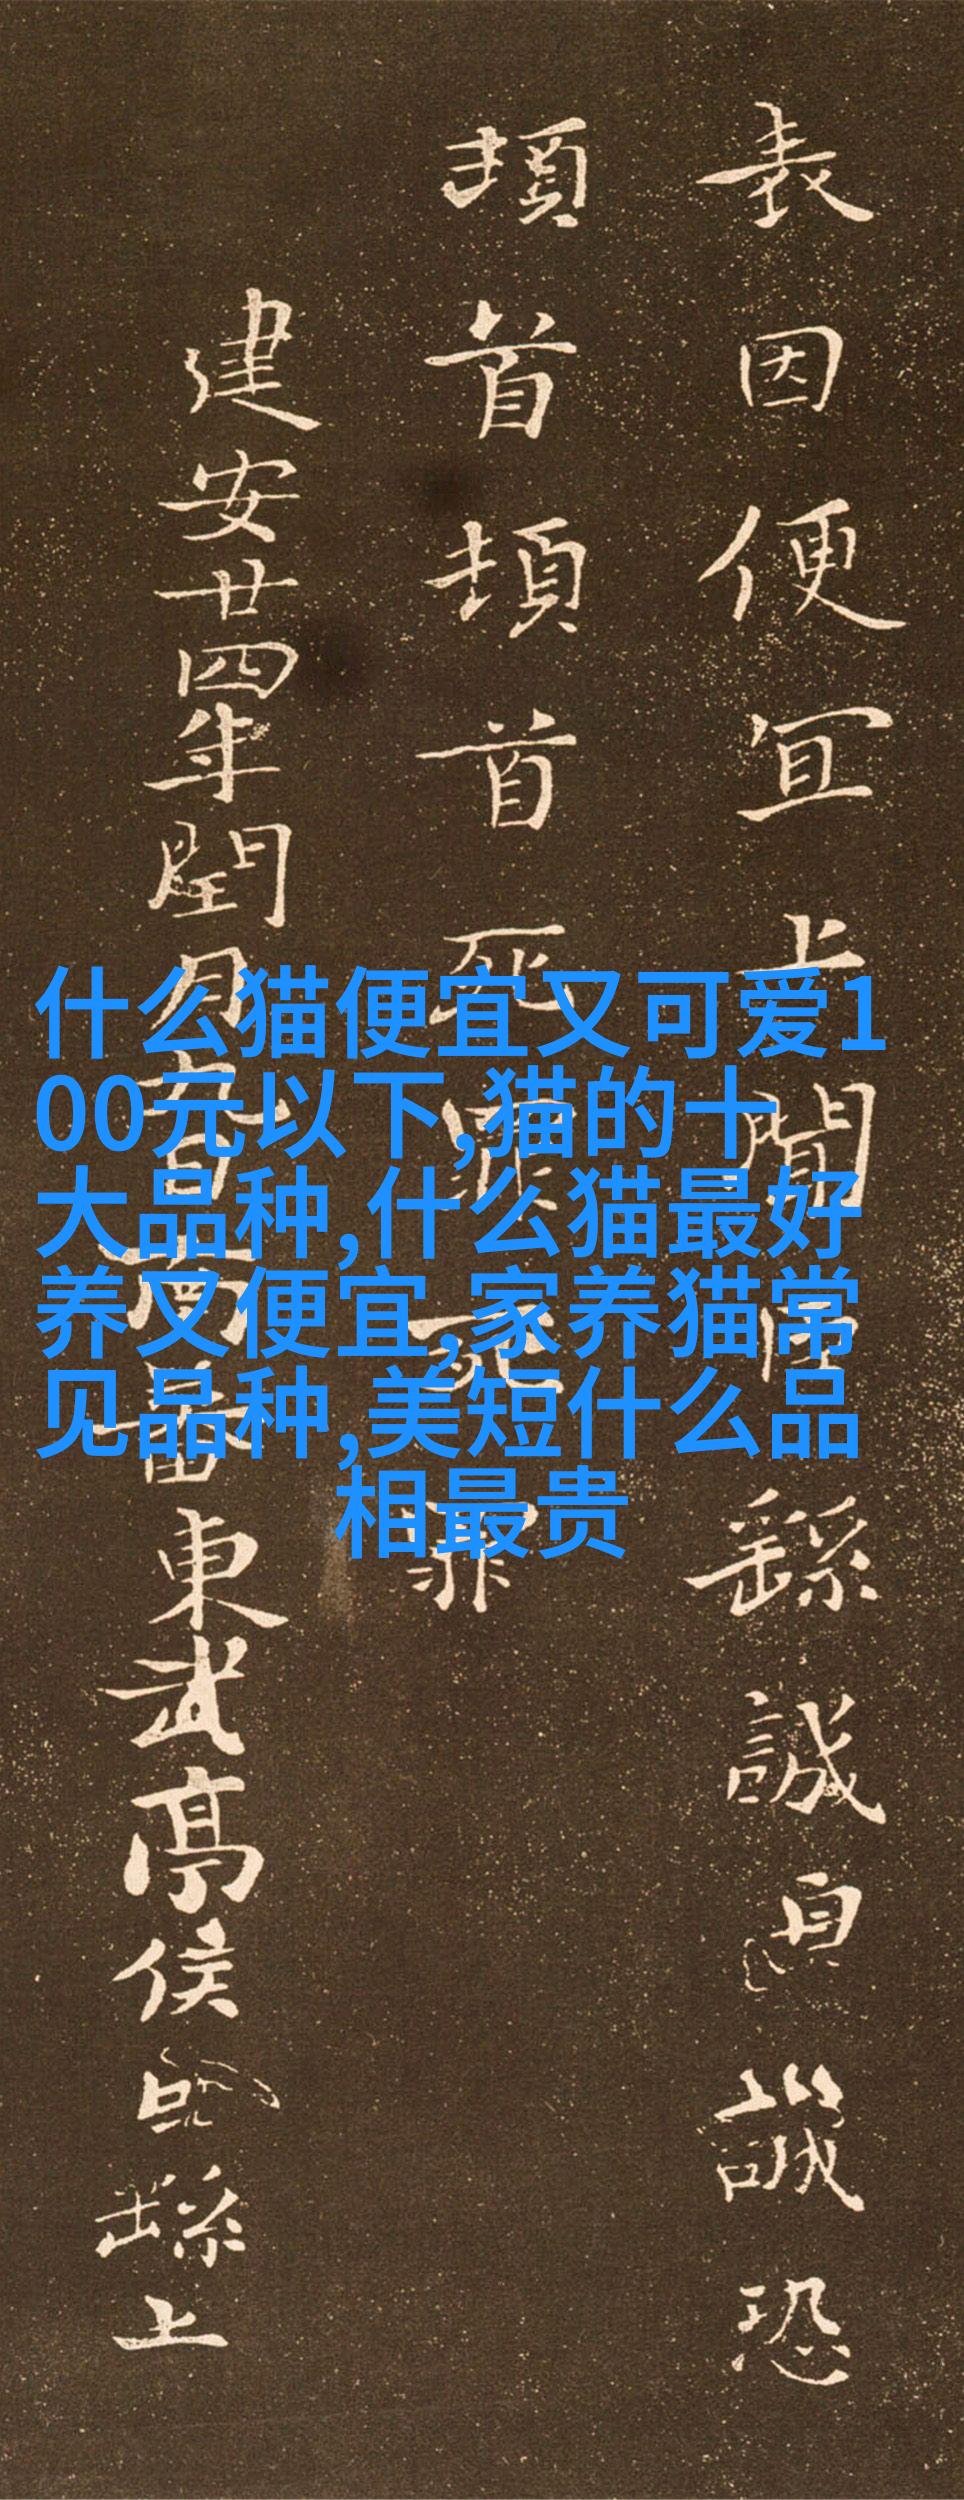 表因便宜上聞臣繇誠誠恐
頓首頓首死罪死罪
建安廿四年閏月九日南蕃東武亭侯臣繇上
什么猫便宜又可爱1
00元以下,猫的十
大品种,什么猫最好
养又便宜,家养猫常
见品种,美短什么品
相最贵